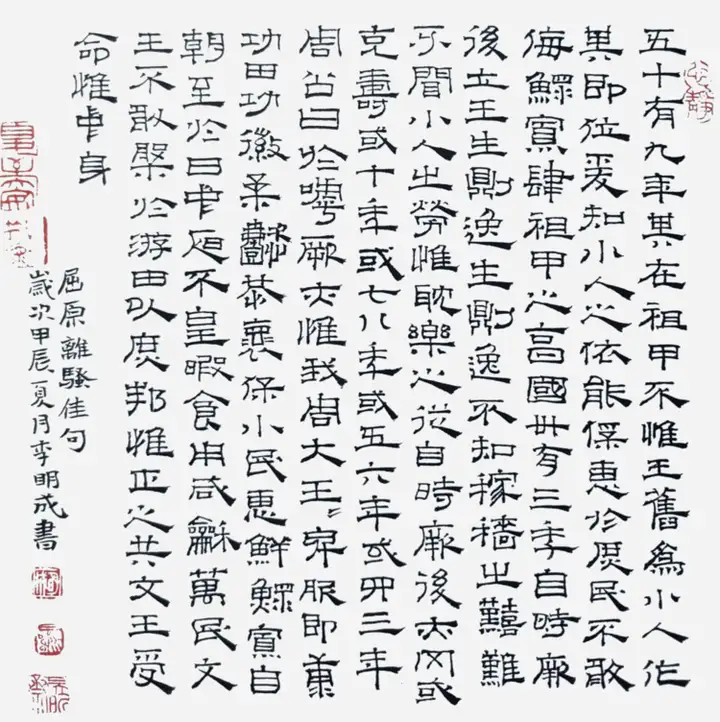 五十有九年其在祖甲不惟王舊為小人作
其即位爰知小人之依能保惠於庶民不敢
侮鰥寡肆祖甲之高國卅有三年自時厥
後立王生則逸生則逸不知稼穡之囏難
不聞小人之勞惟耽樂之從自時厥後亦罔或
克壽或十年或七八年或五六年或四三年
周公曰於嘑厥亦惟我周大王〻卑服即康
功田功徽柔懿恭褱保小民惠鮮鰥寡自
朝至於日中昃不皇暇食用咸龢萬民文
王不敢槃於游田以庶邦惟正之共文王受
命惟中身
屈原離騷佳句
歲次甲辰夏月李明成書